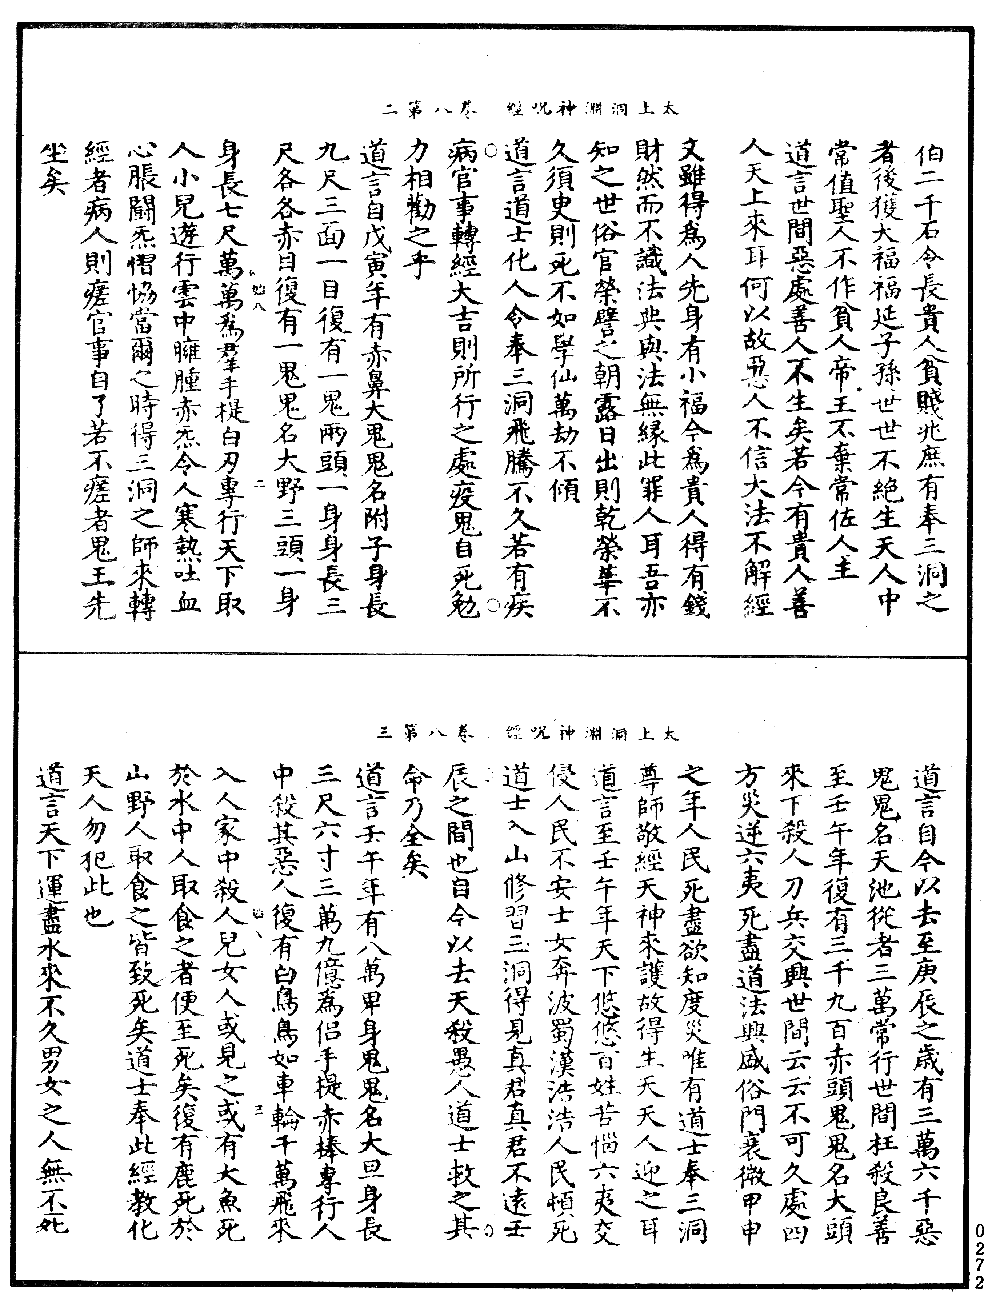 太上洞淵神呪經　卷八第二
伯二千石令長貴人貧賤兆庶有奉三洞之
者後獲大福福延子孫世世不絕生天人中
常值聖人不作貧人帝王不棄常佐人主
道言世間惡處善人不生矣若今有貴人善
人天上來耳何以故惡人不信大法不解經
文雖得為人先身有小福今為貴人得有錢
財然而不識法典與法無緣此罪人耳吾亦
知之世俗官榮譬之朝露日出則乾榮華不
久須臾則死不如學仙萬劫不傾
道言道士化人令奉三洞飛騰不久若有疾
病官事轉經大吉則所行之處疫鬼自死勉
力相勸之乎
道言自戊寅年有赤鼻大鬼鬼名附子身長
九尺三面一目復有一鬼兩頭一身身長三
尺各各赤目復有一鬼鬼名大野三頭一身
身長七尺萬萬為羣手提白刃專行天下取
人小兒遊行雲中癰腫赤炁令人寒熱吐血
心脹鬭炁慴恊當爾之時得三洞之師來轉
經者病人則瘥官事自了若不瘥者鬼王先
坐矣
太上洞淵神呪經　卷八第三
道言自今以去至庚辰之歲有三萬六千惡
鬼鬼名天池從者三萬常行世間枉殺良善
至壬午年復有三千九百赤頭鬼鬼名大頭
來下殺人刀兵交興世間云云不可久處四
方災逆六夷死盡道法興盛俗門衰微甲申
之年人民死盡欲知度災唯有道士奉三洞
尊師敬經天神來護故得生天天人迎之耳
道言至壬午年天下悠悠百姓苦惱六夷交
侵人民不安士女奔波蜀漢浩浩人民頓死
道士入山修習三洞得見真君真君不遠壬
辰之間也自今以去天殺愚人道士救之其
命乃全矣
道言壬午年有八萬卑身鬼鬼名大旦身長
三尺六寸三萬九億為侶手提赤棒專行人
中殺其惡人復有白鳥鳥如車輪千萬飛來
入人家中殺人兒女人或見之或有大魚死
於水中人取食之者便至死矣復有鹿死於
山野人取食之皆致死矣道士奉此經教化
天人勿犯此也
道言天下運盡水來不久男女之人無不死
0272